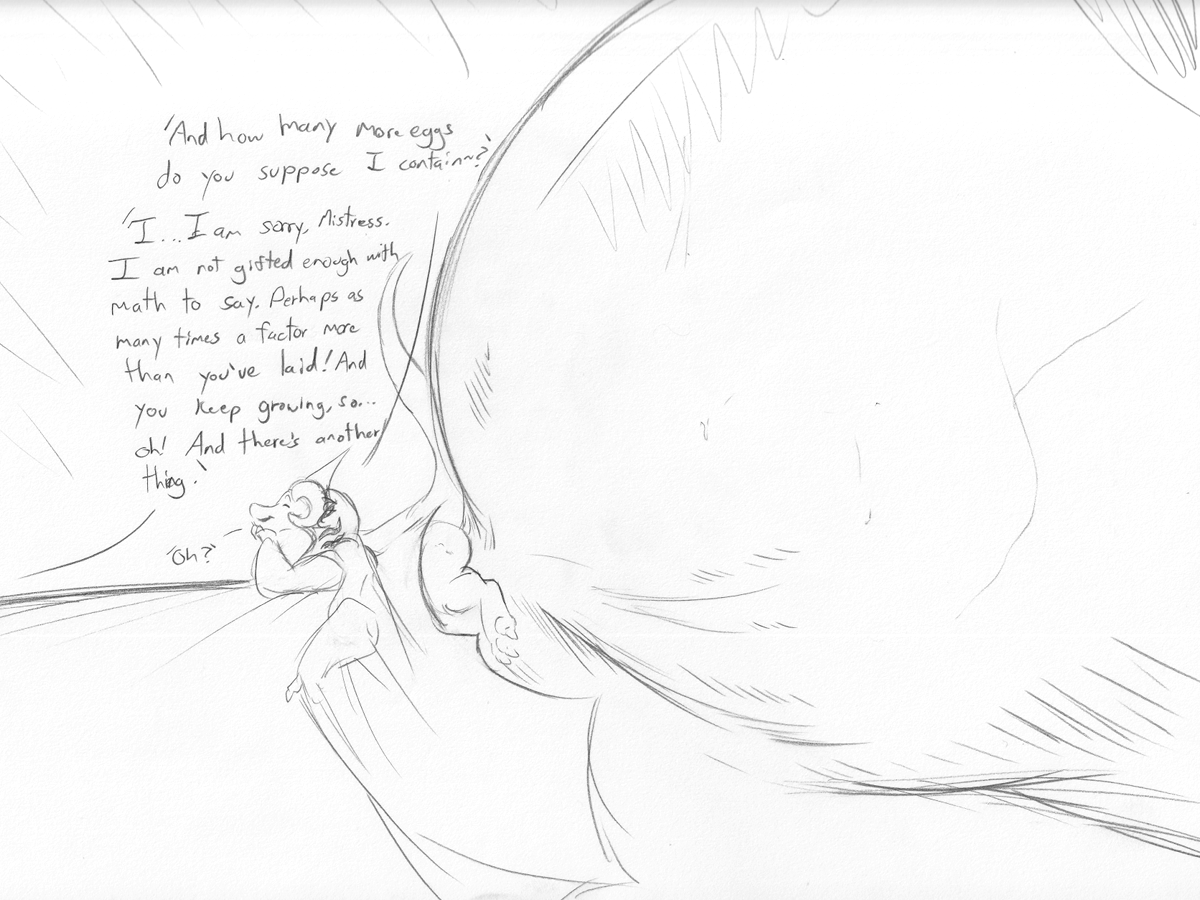 'And how many more eggs
do you suppose I contain~?'
'I...I am sorry, Mistress.
I am not gifted enough with
math to say. Perhaps as
many times a factor more
than you've laid! And
you keep growing, so...
oh! And there's another
thing.'
'Oh?'